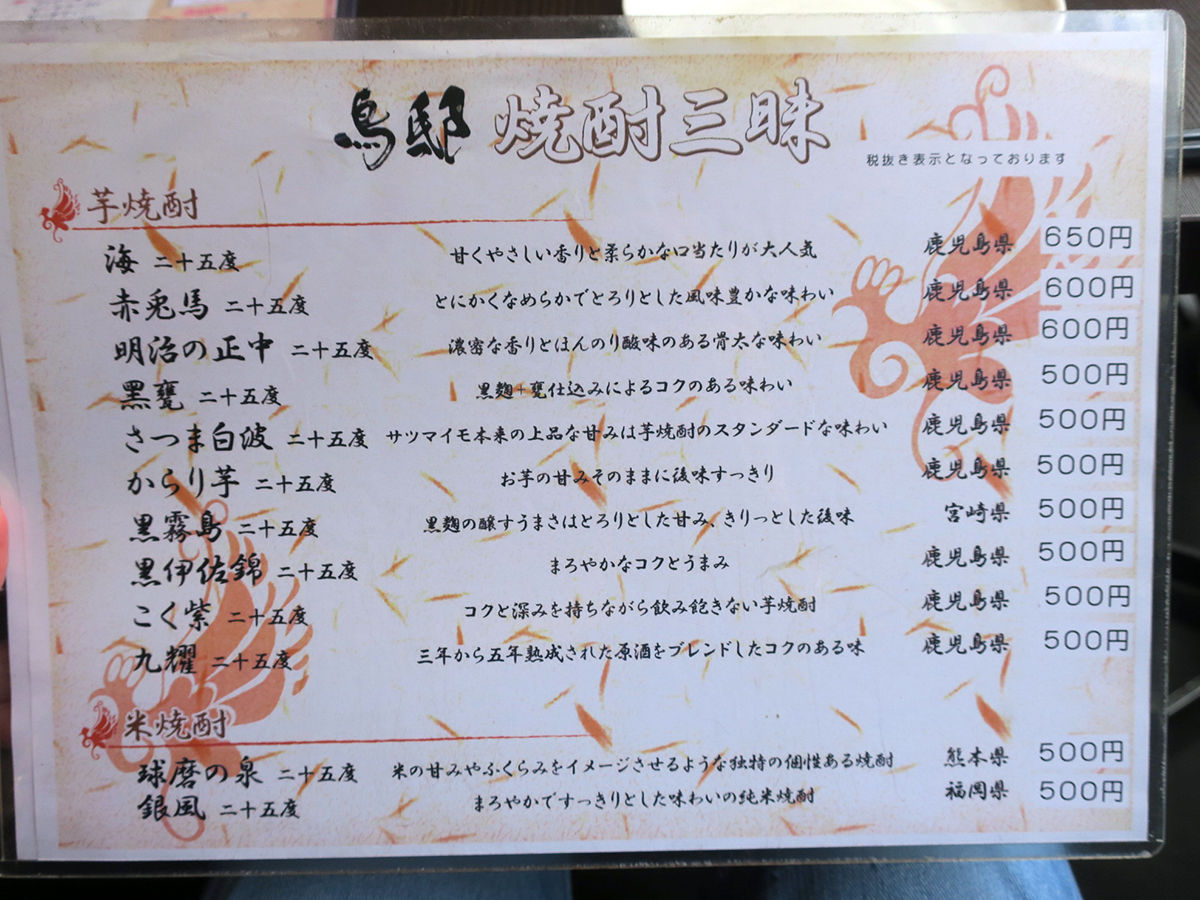 鳥邸 焼酎三昧
税抜き表示となっております
芋焼酎
海 二十五度 甘くやさしい香りと柔らかな口当たりが大人気 鹿児島県 650円
赤兎馬 二十五度 とにかくなめらかでとろりとした風味豊かな味わい 鹿児島県 600円
明治の正中 二十五度 濃密な香りとほんのり酸味のある骨太な味わい 鹿児島県 600円
黒甕 二十五度 黒麹+甕仕込みによるコクのある味わい 鹿児島県 500円
さつま白波 二十五度 サツマイモ本来の上品な甘みは芋焼酎のスタンダードな味わい 鹿児島県 500円
からり芋 二十五度 お芋の甘みそのままに後味すっきり 鹿児島県 500円
黒霧島 二十五度 黒麹の醸すうまさはとろりとした甘み、きりっとした後味 宮崎県 500円
黒伊佐錦 二十五度 まろやかなコクとうまみ 鹿児島県 500円
こく紫 二十五度 コクと深みを持ちながら飲み飽きない芋焼酎 鹿児島県 500円
九耀 二十五度 三年から五年熟成された原酒をブレンドしたコクのある味 鹿児島県 500円
米焼酎
球磨の泉 二十五度 米の甘みやふくらみをイメージさせるような独特の個性ある焼酎 熊本県 500円
銀風 二十五度 まろやかですっきりとした味わいの純米焼酎 福岡県 500円